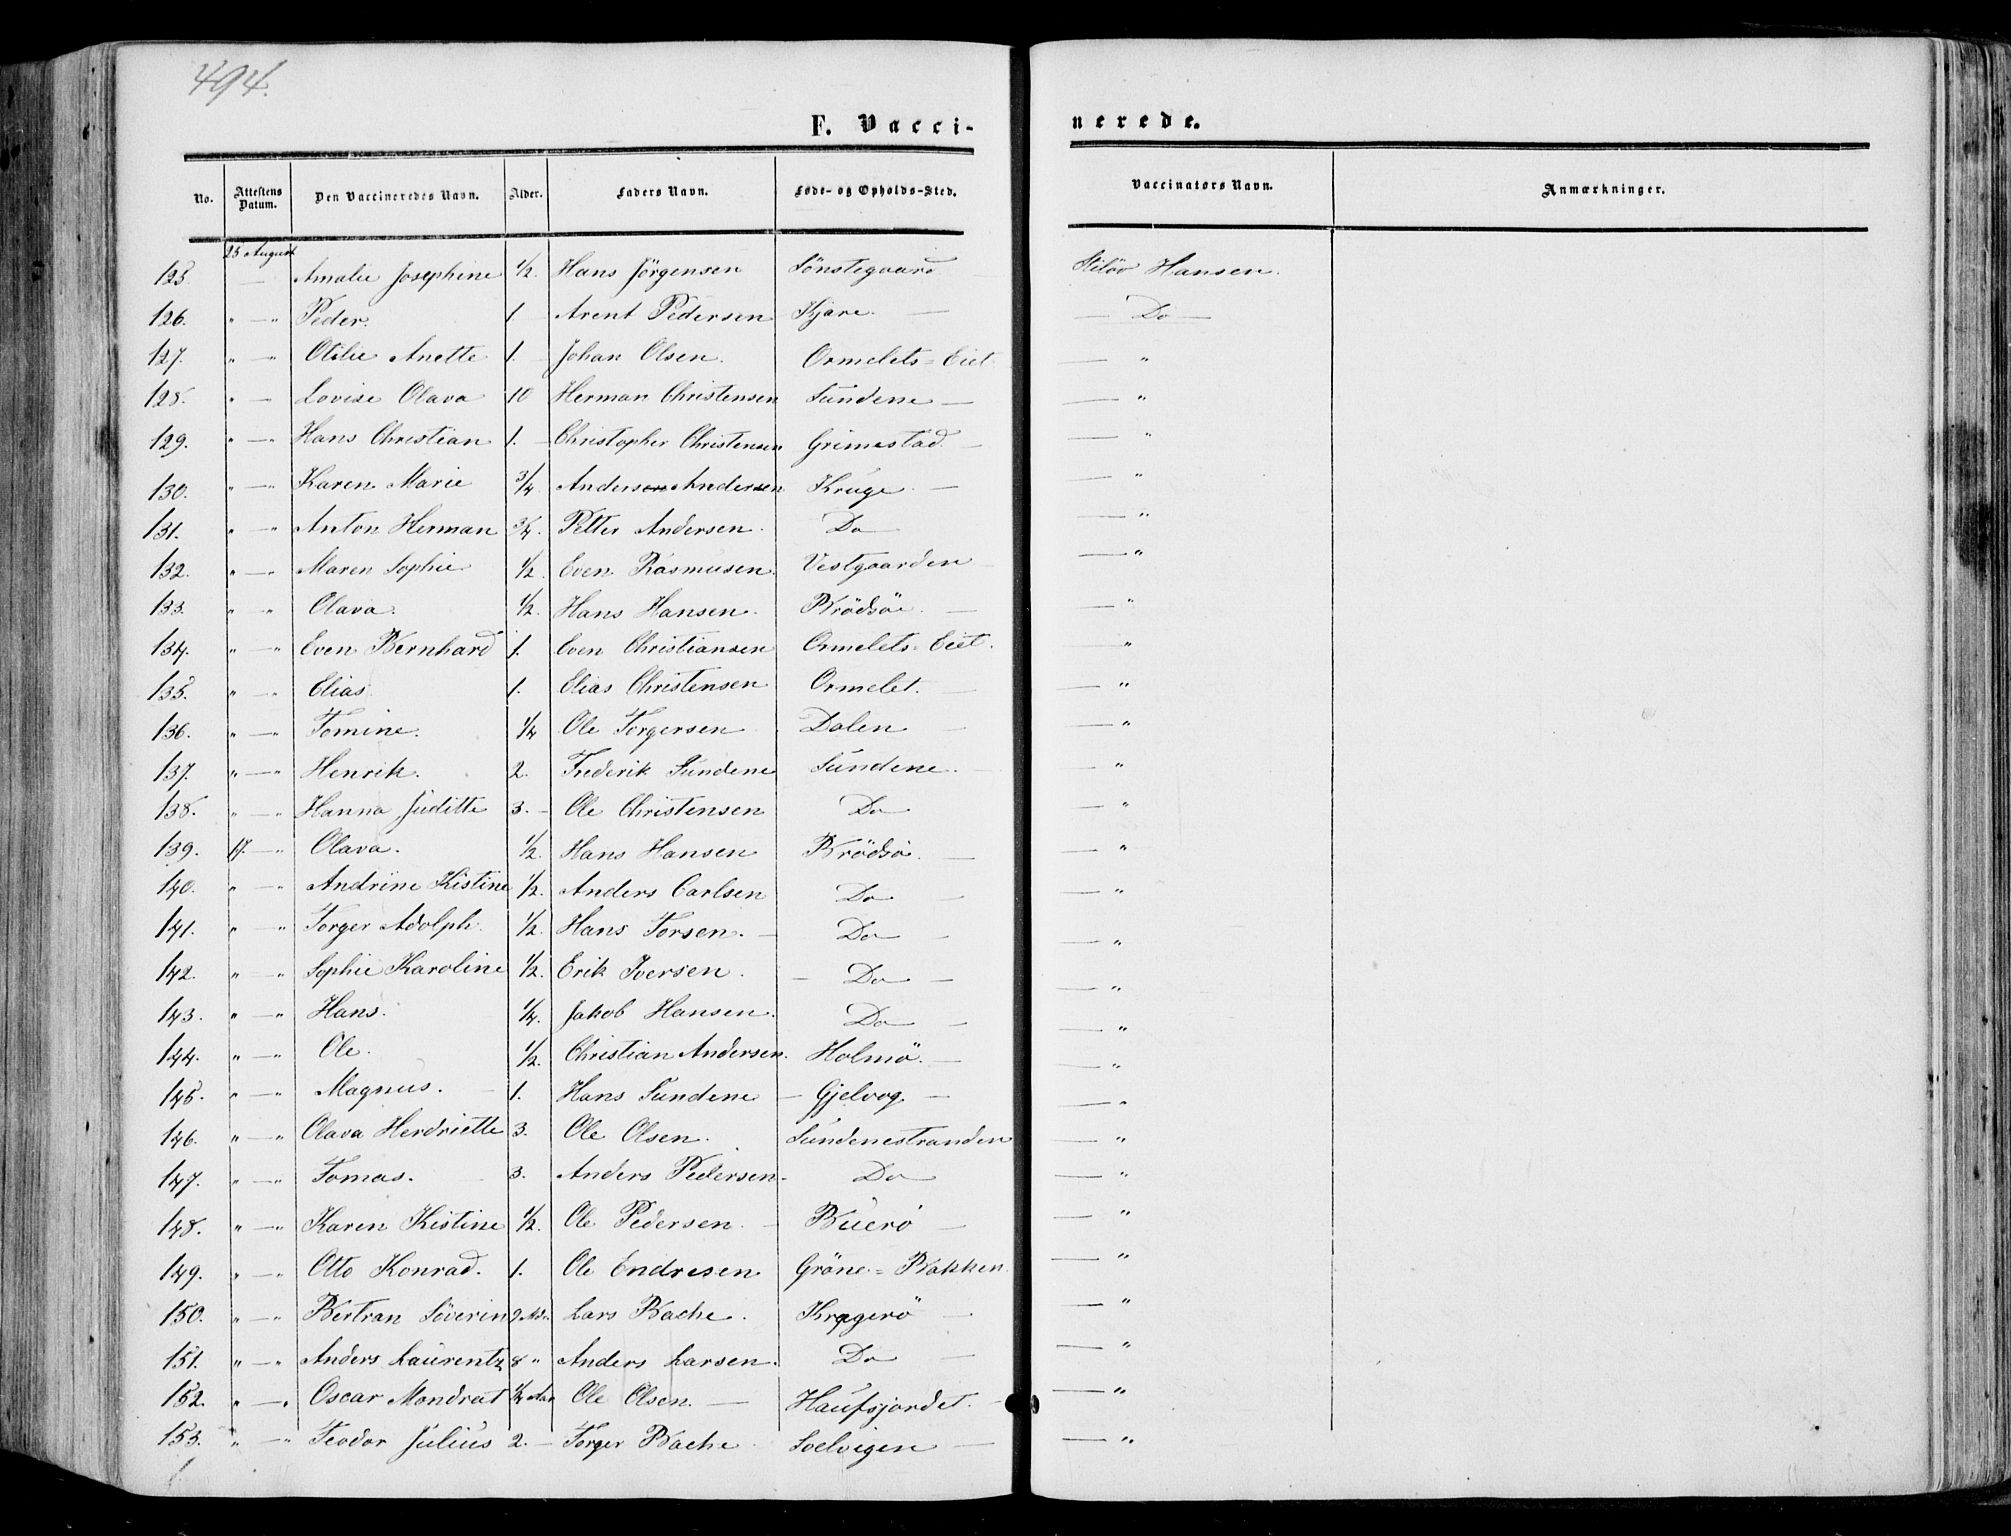 494.
F. Vacci- nerede.
No. Attestens Datum. Den Vaccineredes Navn. Alder. Faders Navn. Føde- og Opholds-Sted. Vaccinators Navn. Anmærkninger.
25 August
125. — Amalie Josephine 1/2. Hans Jörgensen Sönstegaard — Hansen.
126. " — " Peder. 1. Arent Pedersen Kjære. — — Do —
127. " " Otilie Anette 1. Johan Olsen. Ormelets=Eiet. — "
128. " — Lovise Olava 10 Herman Christensen Sundene — — "
129. " — " Hans Christian 1. — Christopher Christensen Grimestad. — — "
130. " — " Karen Marie 3/4. Andersen Andersen Kruge. — — "
131. " — " Anton Herman 3/4. Petter Andersen. Do — — "
132. " — " Maren Sophie 1/2. Even Rasmusen. Vestgaarden — — "
133. " " Olava. 1/2. Hans Hansen. Brödsöe. — — "
134. " — " Even Bernhard 1. Even Christiansen Ormelets=Eiet. — "
135. " — " Elias. 1. Elias Christensen Ormelet. — — "
136. " — " Tomine. 1/4 Ole Torgersen Dalen — — "
137. " — " Henrik. 2. Frederik Sundene Sundene. — — "
138. " — " Hanna Juditte 3. — Ole Christensen Do — "
139. 17. — " Olava. 1/2. Hans Hansen Brödsö. — — "
140. " — " Andrine Kistine 1/2. Anders Carlsen Do — — "
141. " — " Torger Adolph. 1/2. Hans Torsen. — Do — — "
142. " — " Sophie Karoline 1/2. Erik Iversen. — Do — — "
143. " — " Hans. 1/4. Jakob Hansen. Do — — "
144. " — " Ole. 1/2. Christian Andersen. Holmö. — — "
145. " — " Magnus. — 1. Hans Sundene — Gjelvog — — "
146. " — " Olava Herdriette 3. Ole Olsen. Sundenestranden — "
147. " — " Tomas. — 3. Anders Pedersen. Do — "
148. " — " Karen Kistine 1/2. Ole Pedersen. — Buerö — — "
149. " — " Otto Konrad. 1. Ole Endresen Gröne=Bakken. — "
150. " — " Bertran Söverin 9 Mdr. Lars Bache. Kragerö — — "
151. " — " Anders Laurentz 8 " Anders Larsen. Do — — "
152. " — " Oscar Mondrat 1/4 Aar Ole Olsen. — Haufsjordet. — — "
153. " — " Teodor Julius 2. — Torger Bache. Soelvigen — — "